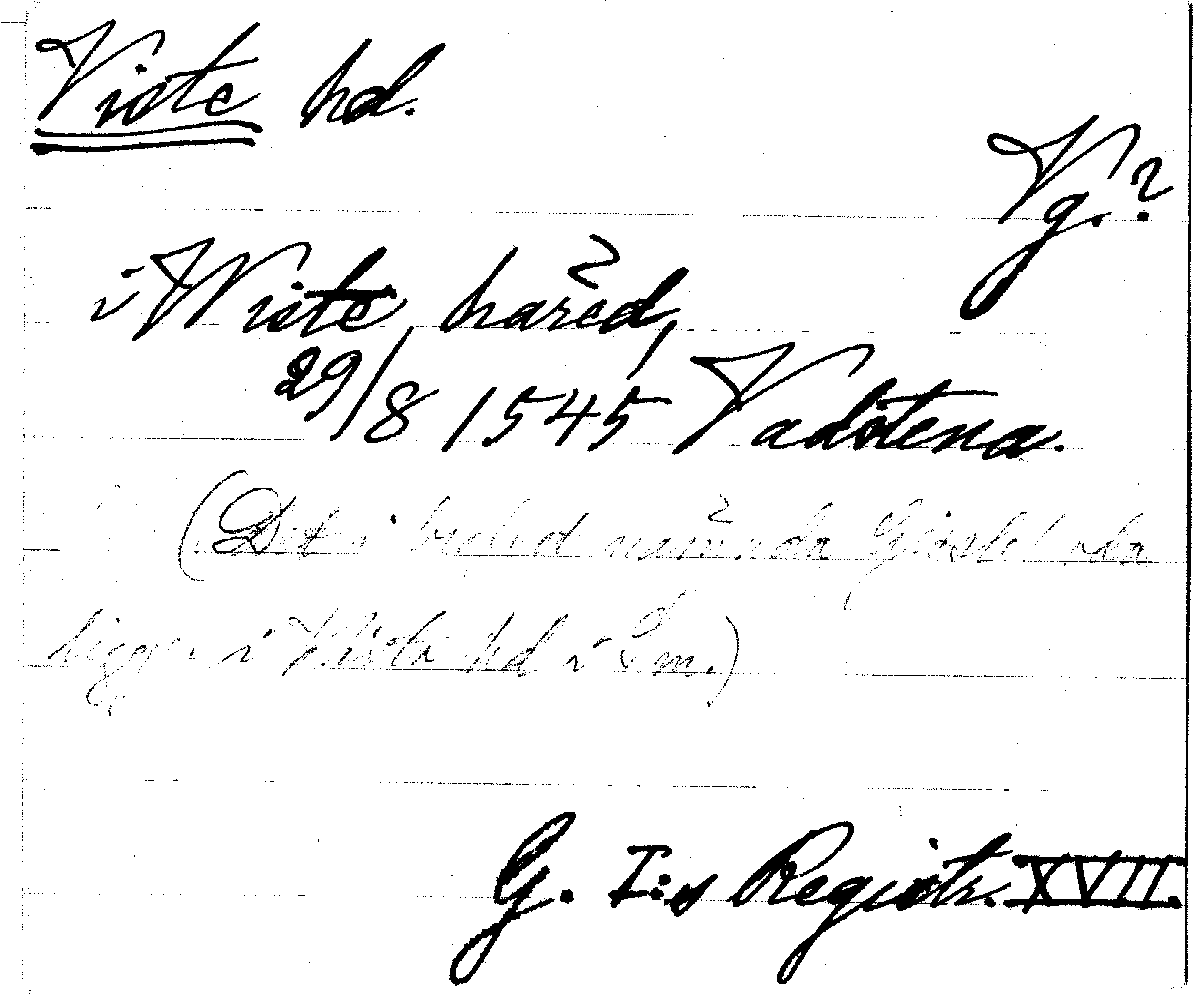 Viste hd.
Vg.?
i Wiste häred,
29/8 1545 Vadstena.
(Det i brefvet nämnda
ligger i Vista hd i Sm.)
G. I:s Registr. XVII.